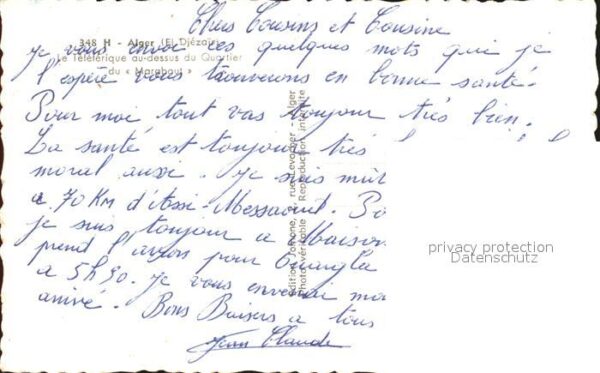 Chers Cousins et Cousine
348 H - Alger (El Djézaïr)
Le Téléférique au-dessus du Quartier
du « Marabout »
je vous envoi ces quelques mots qui je
l'espère vous trouverons en bonne santé.
Pour moi tout vas toujour très bien.
La santé est toujour très
moral aussi. Je suis mut
a 70 Km d'Assi-Messaoud. Po
je suis toujour a Maison
prend l'avion pour Ouargla
a 5h30. Je vous enverrai mo
arrivé. Bons Baisers a tous
Jean Claude
Edition Jomone, 2, rue Levacher - Alger
Photo véritable - Reproduction interdite
privacy protection
Datenschutz